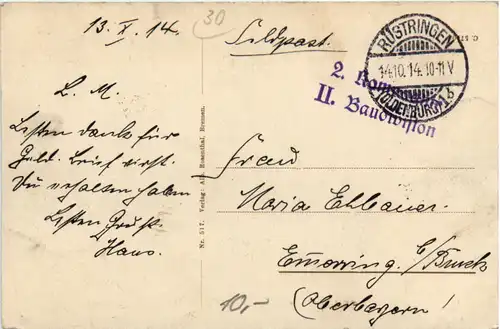 13. X. 14.
30
Feldpost.
RÜSTRINGEN
14.10.14.10-11V
(OLDENBURG) 1 b
2. Kom
II. Baudivision
L. M.
Besten Dank für
Geld. Brief wirst
Du erhalten haben
Besten Gruß.
Hans.
Nr. 517. Verlag: Alb. Rosenthal, Bremen.
Frau
Maria Ehbauer.
Emmering. b/Bruck
(Oberbayern!
10,-